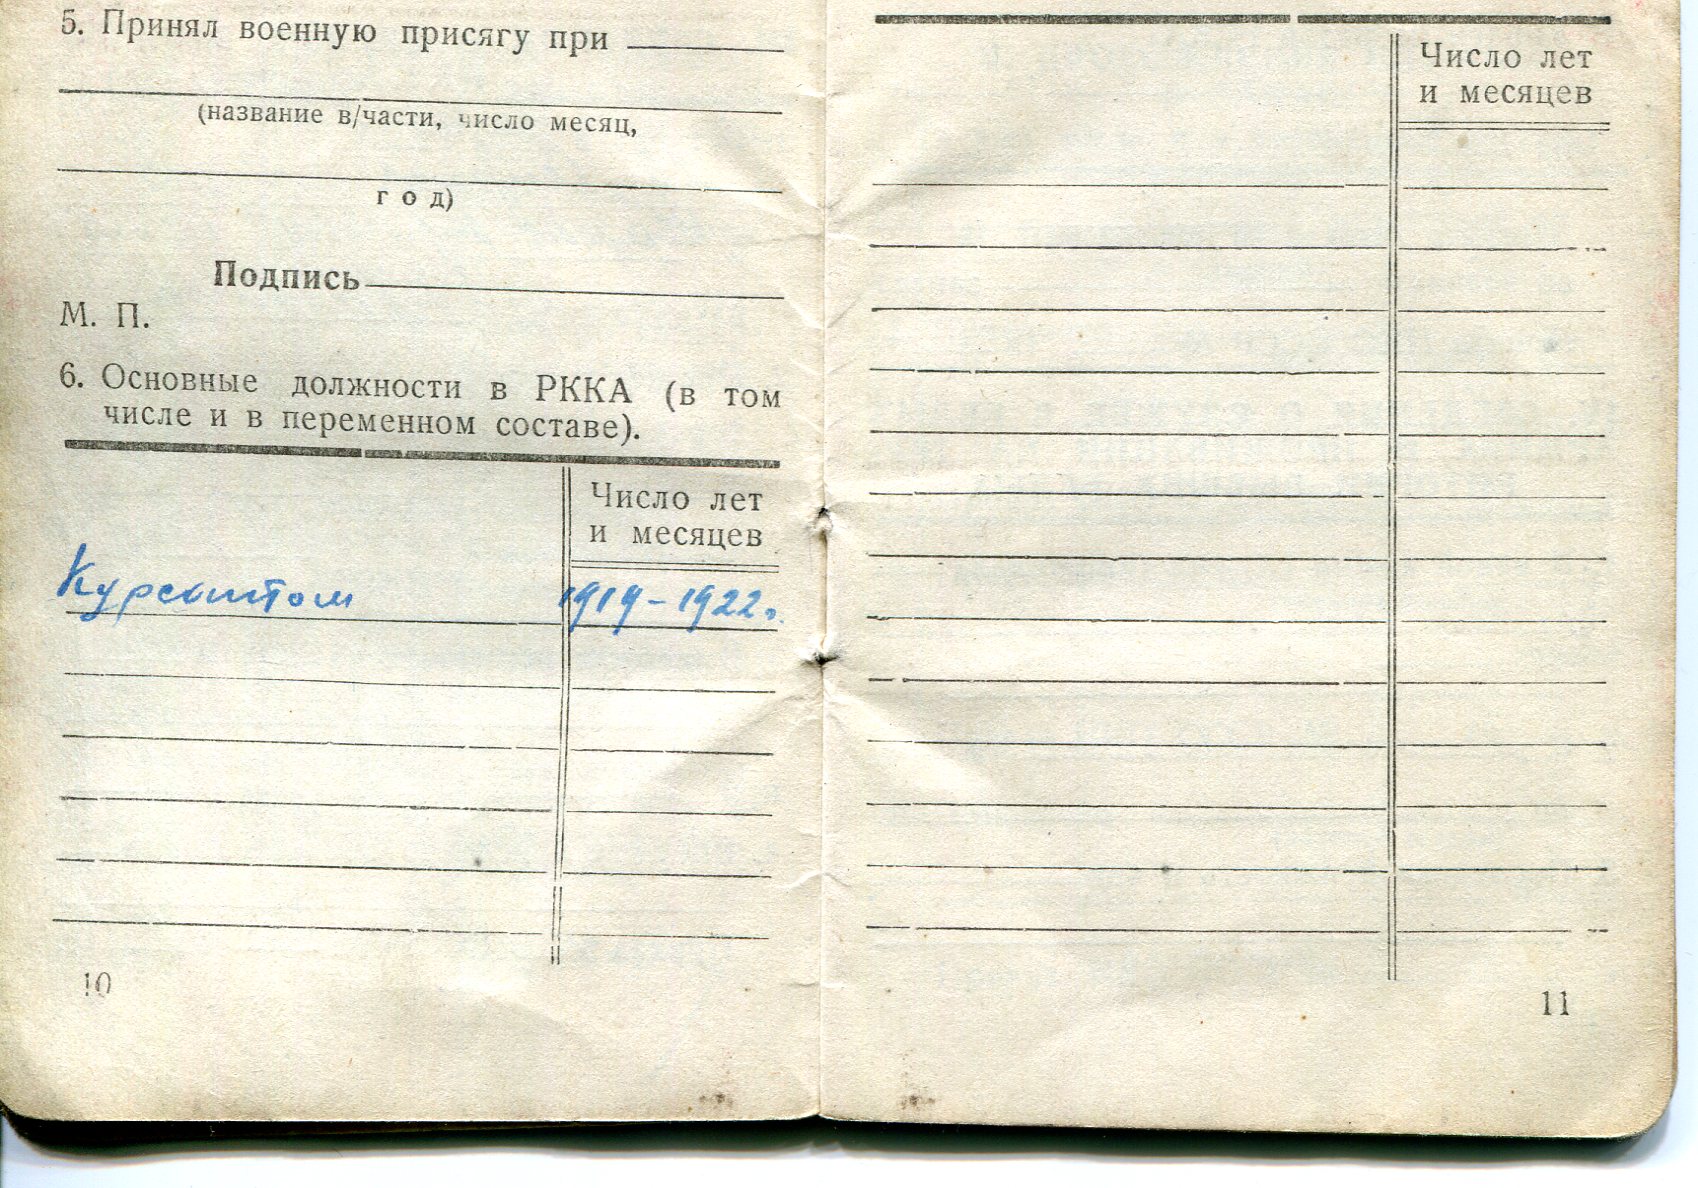 5. Принял военную присягу при
(название в/части, число месяц,
год)
Подпись
М. П.
6. Основные должности в РККА (в том
числе и в переменном составе).
Число лет
и месяцев
Курсантом 1919-1922г.
10
Число лет
и месяцев
11